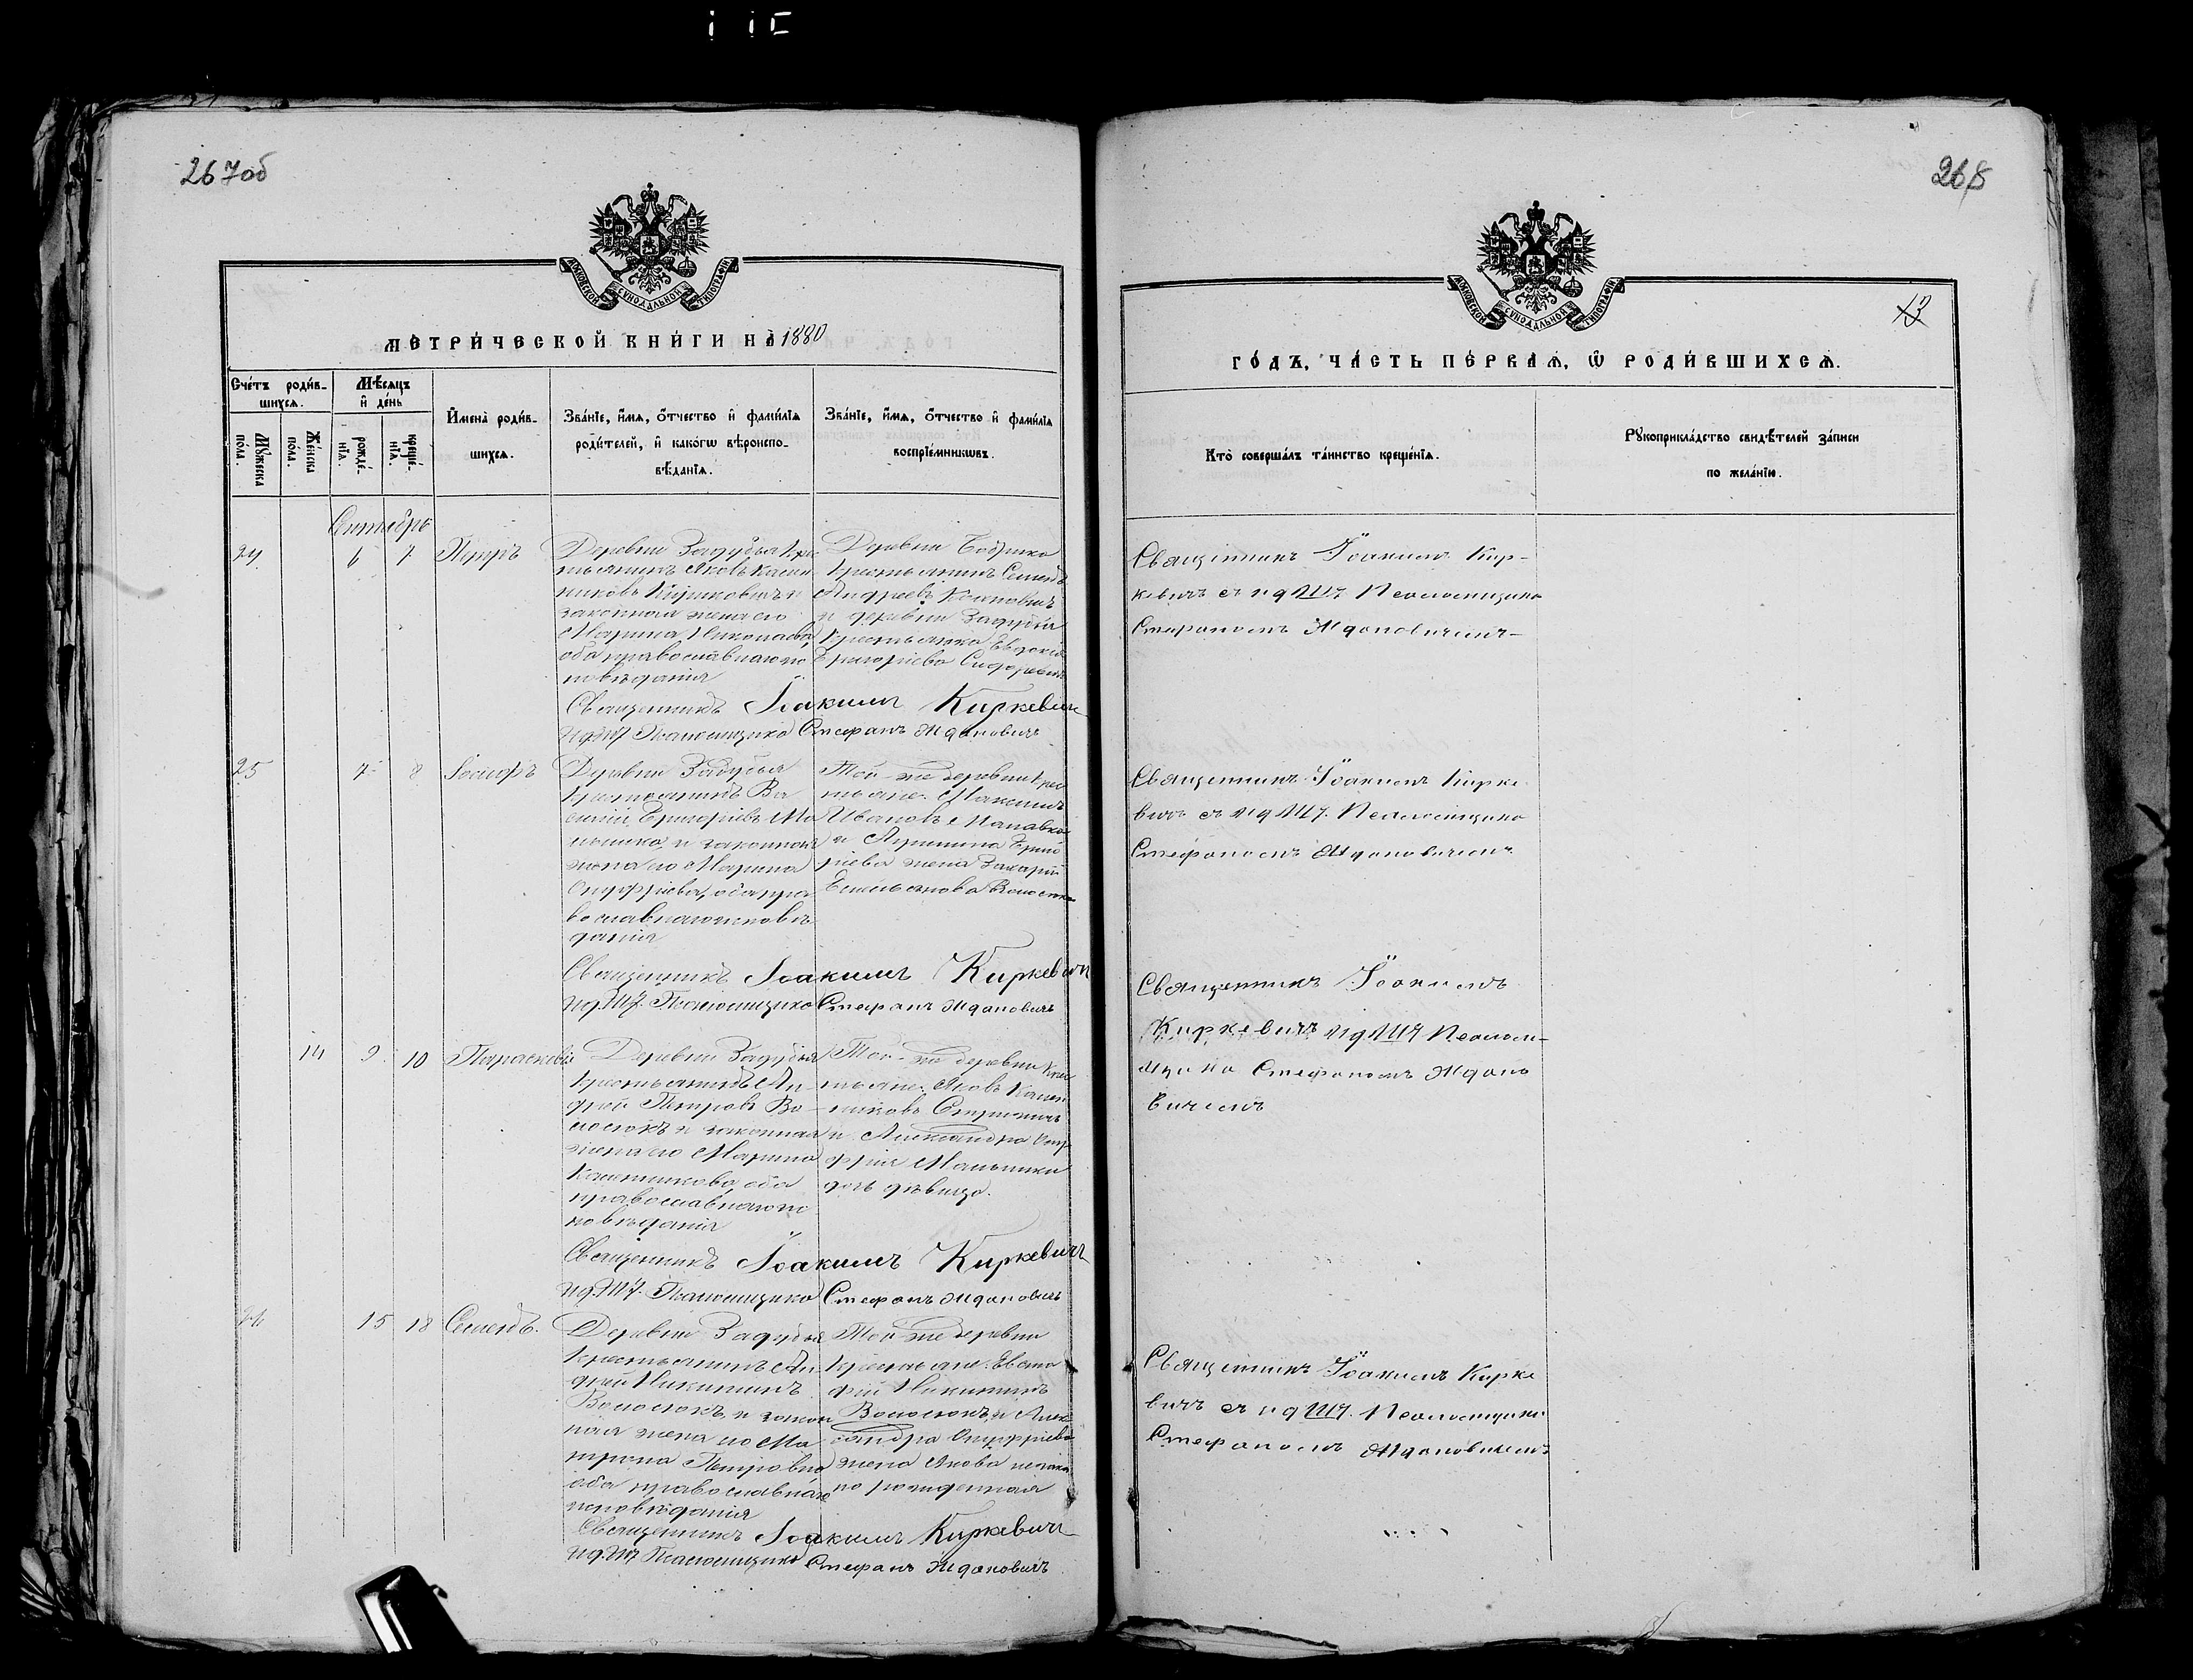 267об
МОСКОВСКОЙ СѴНОДАЛЬНОЙ ТИПОГРАФІИ
МЕТРИ́ЧЕСКОЙ КНИ́ГИ НА̀ 1880
Сче́тъ роди́в-
шихсѧ.
Мꙋ́жеска
по́ла.
Же́нска
по́ла.
Мѣ́сѧцъ
и҆ де́нь
рожде́-
нїѧ.
креще́-
нїѧ.
И҆мена̀ роди́в-
шихсѧ.
Зва́нїе, и҆́мѧ, ѻ҆́тчество и҆ фами́лїѧ
роди́телей, и҆ како́гѡ вѣроиспо-
вѣ́данїѧ.
Зва́нїе, и҆́мѧ, ѻ҆́тчество и҆ фами́лїѧ
воспрїе́мникѡвъ.
6 7 Петръ
Деревни Задубья Кре
стьянинъ Яковъ
законная жена его
Марина
оба православнаго ис
повѣданія
Деревни
Крестьянинъ Семенъ
Андреевъ
и деревни Задубья
Крестьянка Евдокія
Григоріева
Священникъ Іоакимъ Киркевичъ
Псаломщика Стефанъ Ждановичъ
25 7 8 Іосифъ
Деревни Задубья
Крестьянинъ Ва
силій Григорьевъ Ма
и законная
жена его Марина
Онуффріева, оба пра
вославнаго исповѣ
данія
Той-же деревни Кре
стьяне: Максимъ
Ивановъ
и Григо
ріева жена Захарія
Емельянова Волосюка
Священникъ Іоакимъ Киркевичъ
Псаломщика Стефанъ Ждановичъ
14 9 10 Параскевія
Деревни Задубья
Крестьянинъ Ан-
дрей Петровъ Во-
лосюкъ и законная
жена его Марина
оба
православнаго ис
повѣданія
Той-же деревни Кре
стьяне: Яковъ
и Александра Онуф
фрія
дочь дѣвица.
Священникъ Іоакимъ Киркевичъ
Псаломщика Стефанъ Ждановичъ
15 18 Семенъ.
Деревни Задубья
Крестьянинъ Ан-
дрей Никитинъ
Волосюкъ, и закон
ная жена его Ма
трона Петровна
оба православнаго
исповѣданія
Той-же деревни
Крестьяне:
Никитинъ
Волосюкъ, и Алек
сандра Онуффріева
жена Якова
Священникъ Іоакимъ Киркевичъ
Псаломщика Стефанъ Ждановичъ
268
13
МОСКОВСКОЙ СѴНОДАЛЬНОЙ ТИПОГРАФІИ
ГО́ДЪ, ЧА́СТЬ ПЕ́РВАѦ, Ѽ РОДИ́ВШИХСѦ.
Кто̀ соверша́лъ та́инство креще́нїѧ.
Рꙋкоприкла́дство свидѣ́телей за́писи
по жела́нїю.
Священникъ Іоакимъ Кир-
кевичъ съ Псаломщика
Стефаномъ Ждановичемъ
Священникъ Іоакимъ Кирке
вичъ съ Псаломщика
Стефаномъ Ждановичемъ
Священникъ Іоакимъ
Киркевичъ Псалом-
щика Стефаномъ Ждано
вичемъ
Священникъ Іоакимъ Кирке
вичъ съ Псаломщика
Стефаномъ Ждановичемъ